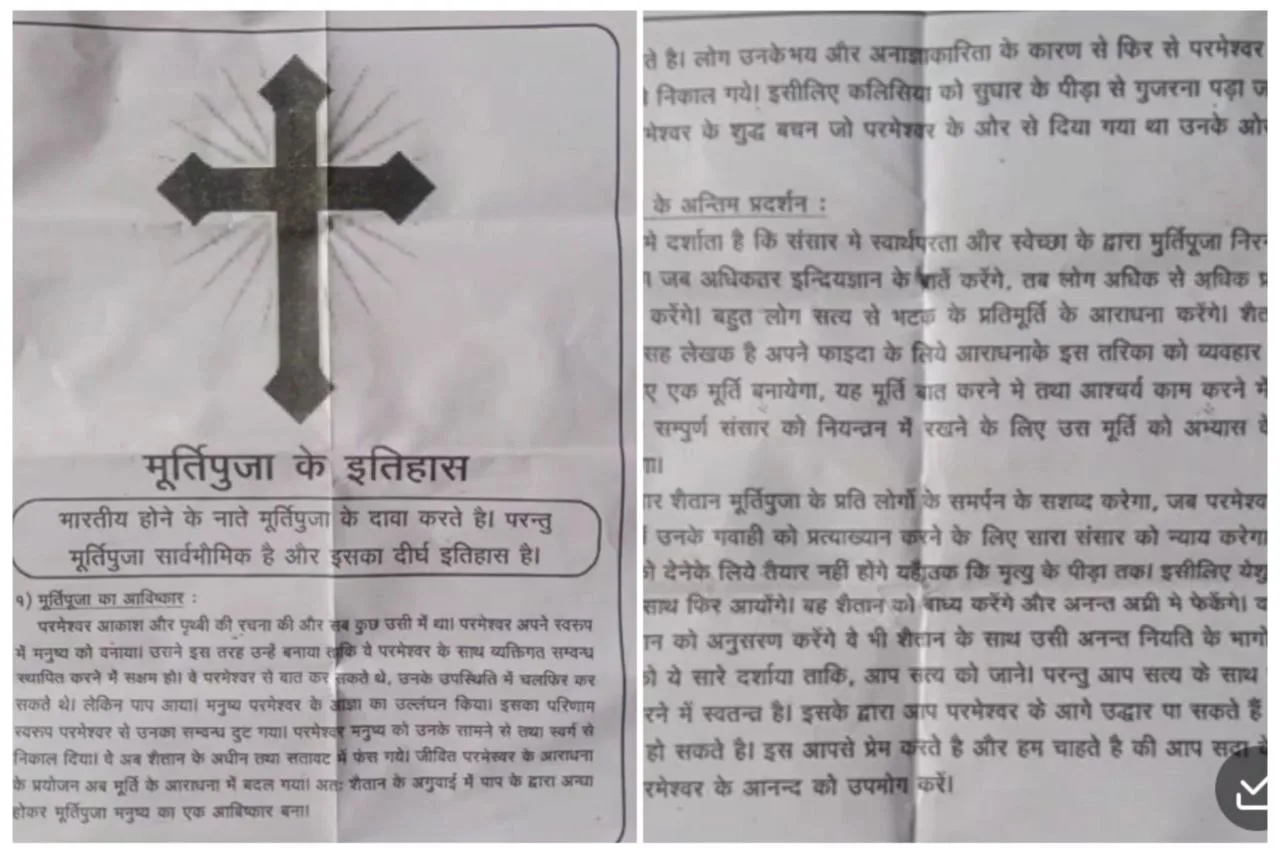 मूर्तिपुजा के इतिहास
भारतीय होने के नाते मूर्तिपुजा के दावा करते है। परन्तु
मूर्तिपुजा सार्वभौमिक है और इसका दीर्घ इतिहास है।
१) मूर्तिपूजा का आविष्कार :
परमेश्वर आकाश और पृथ्वी की रचना की और सब कुछ उसी में था। परमेश्वर अपने स्वरुप
में मनुष्य को वनाया। उसने इस तरह उन्हें बनाया ताकि वे परमेश्वर के साथ व्यक्तिगत सम्वन्ध
स्थापित करने में सक्षम हो। वे परमेश्वर से बात कर सकते थे, उनके उपस्थिति में चलफिर कर
सकते थे। लेकिन पाप आया। मनुष्य परमेश्वर के आज्ञा का उल्लंघन किया। इसका परिणाम
स्वरुप परमेश्वर से उनका सम्वन्ध टुट गया। परमेश्वर मनुष्य को उनके सामने से तथा स्वर्ग से
निकाल दिया। वे अब शैतान के अधीन तथा सतावट में फंस गये। जीवित परमेस्वर के आराधना
के प्रयोजन अब मूर्ति के आराधना में बदल गया। अतः शैतान के अगुवाई में पाप के द्वारा अन्धा
होकर मूर्तिपूजा मनुष्य का एक आबिष्कार बना।
ते है। लोग उनके भय और अनाज्ञाकारिता के कारण से फिर से परमेश्वर
निकाल गये। इसीलिए कलिसिया को सुधार के पीड़ा से गुजरना पड़ा
मेश्वर के शुद्ध बचन जो परमेश्वर के ओर से दिया गया था उनके
के अन्तिम प्रदर्शन :
मे दर्शाता है कि संसार मे स्वार्थपरता और स्वेच्छा के द्वारा मुर्तिपूजा
जब अधिकतर इन्दियज्ञान के बातें करेंगे, तब लोग अधिक से अधिक
करेंगे। बहुत लोग सत्य से भटक के प्रतिमूर्ति के आराधना करेंगे।
सह लेखक है अपने फाइदा के लिये आराधनाके इस तरिका को व्यवहार
ए एक मूर्ति बनायेगा, यह मूर्ति बात करने मे तथा आश्चर्य काम करने में
सम्पुर्ण संसार को नियन्त्रन में रखने के लिए उस मूर्ति को अभ्यास
गा।
शैतान मूर्तिपुजा के प्रति लोगों के समर्पन के सशब्द करेगा, जब परमेश्व
उनके गवाही को प्रत्याख्यान करने के लिए सारा संसार को न्याय करेगा
देनेके लिये तैयार नहीं होगे यहाँतक कि मृत्यु के पीड़ा तक। इसीलिए येशु
साथ फिर आयोंगे। वह शैतान को बाध्य करेंगे और अनन्त अग्नी मे फेकेंगे।
को अनुसरण करेंगे वे भी शैतान के साथ उसी अनन्त नियति के
ये सारे दर्शाया ताकि, आप सत्य को जाने। परन्तु आप सत्य के साथ
रने में स्वतन्त्र है। इसके द्वारा आप परमेश्वर के आगे उद्धार पा सकते हैं
हो सकते है। इस आपसे प्रेम करते है और हम चाहते है की आप सदा
रमेश्वर के आनन्द को उपभोग करें।